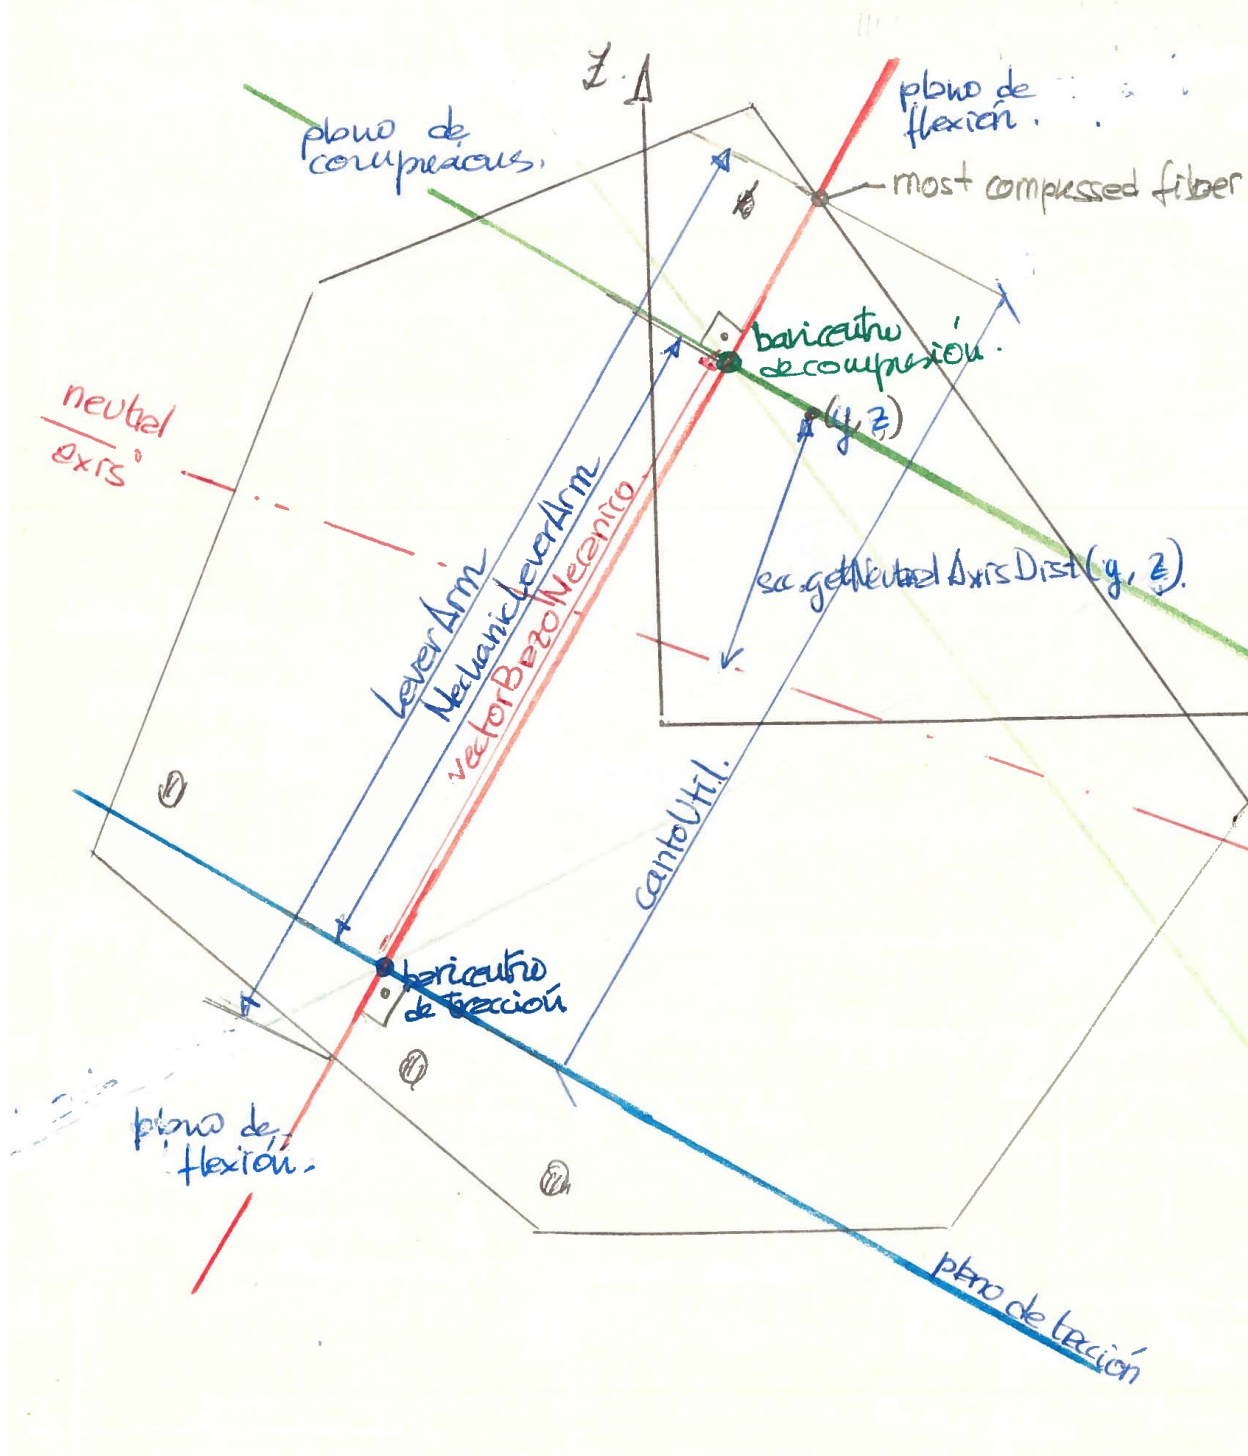 Z
plano de
flexión.
plano de
compresions.
most compressed fiber
baricentro
de compresión.
(y, z)
neutral
axis
LeverArm
MechanicLeverArm
vectorBrazoMecanico
scc.getNeutralAxisDist(y, z).
cantoUtil.
baricentro
de tracción
plano de
flexión.
plano de tracción